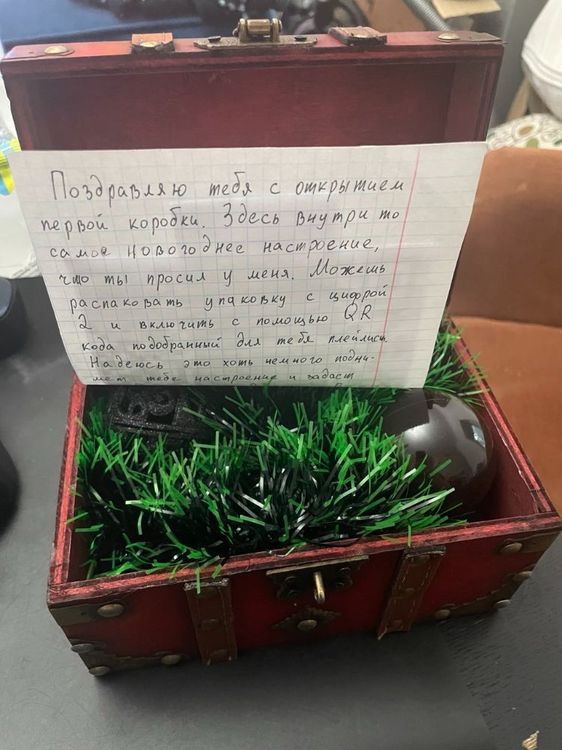 Поздравляю тебя с открытием
первой коробки. Здесь внутри то
самое новогоднее настроение,
что ты просил у меня. Можешь
распаковать упаковку с цифрой
2 и включить с помощью QR
кода подобранный для тебя плейлист.
Надеюсь это хоть немного подни-
мет тебе настроение и задаст